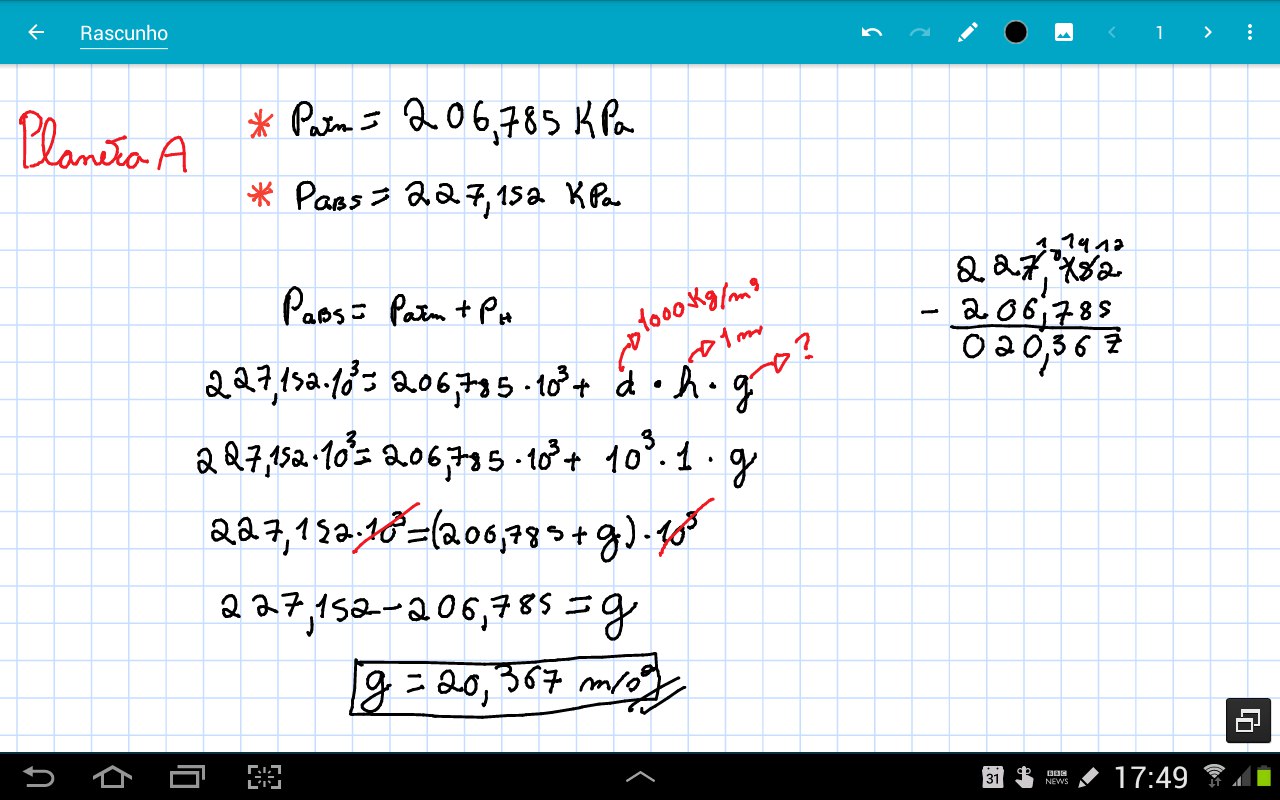 Rascunho
1
Planeta A
* Patm = 206,785 KPa
* PABS = 227,152 KPa
PABS = Patm + PH
1000 Kg/m³
1 m
?
227,152·10³ = 206,785·10³ + d · h · g
227,152·10³ = 206,785·10³ + 10³ · 1 · g
227,152·10³ = (206,785 + g) · 10³
227,152 - 206,785 = g
g = 20,367 m/s²
1 0 1 14 12
227,152
- 206,785
020,367
31
BBC NEWS
17:49